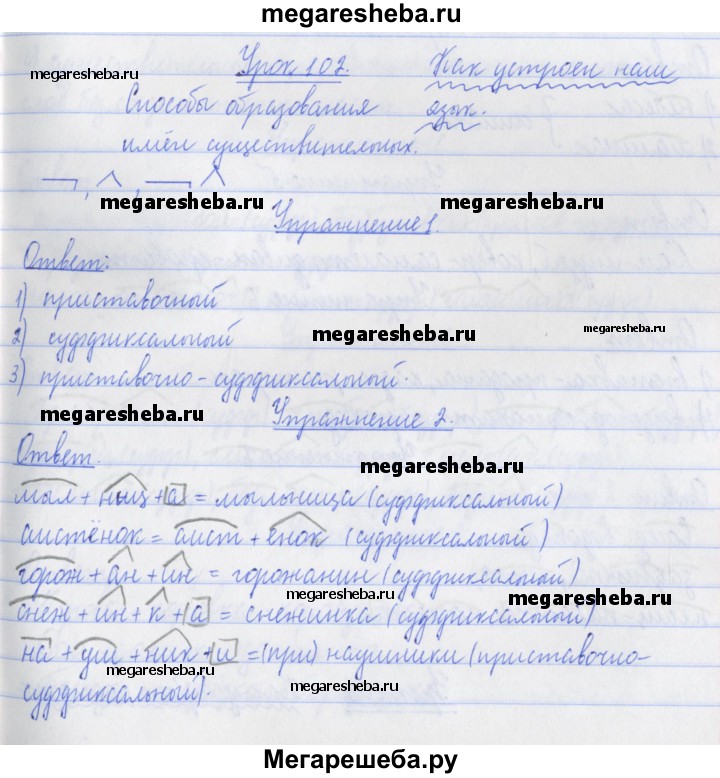 megaresheba.ru
Урок 102. Как устроен наш
megaresheba.ru megaresheba.ru
Способы образования язык.
имён существительных.
megaresheba.ru megaresheba.ru
Упражнение 1.
Ответ:
1) приставочный
2) суффиксальный
megaresheba.ru megaresheba.ru
3) приставочно-суффиксальный.
megaresheba.ru
Упражнение 2.
Ответ.
megaresheba.ru
мыл + ниц + а = мыльница (суффиксальный)
аистёнок = аист + ёнок (суффиксальный)
горож + ан + ин = горожанин (суффиксальный)
megaresheba.ru megaresheba.ru
снеж + ин + к + а = снежинка (суффиксальный)
на + уш + ник + и = (при) наушники (приставочно-
megaresheba.ru megaresheba.ru
суффиксальный).
megaresheba.ru
Мегарешеба.ру